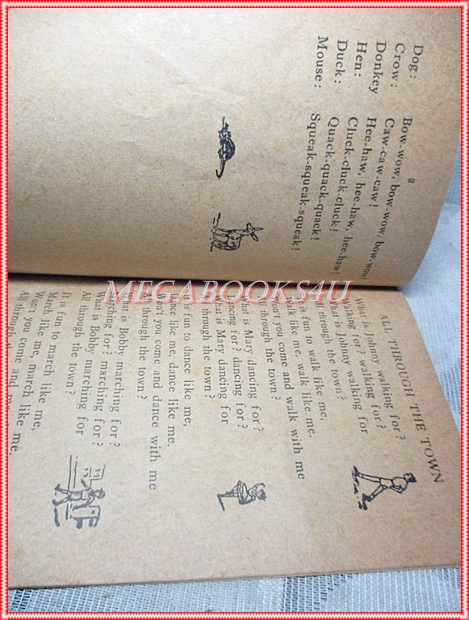 2
Dog: Bow-wow, bow-wow, bow-wow!
Crow: Caw-caw-caw!
Donkey Hee-haw, hee-haw, hee-haw!
Hen: Cluck-cluck-cluck!
Duck: Quack-quack-quack!
Mouse: Squeak-squeak-squeak!
MEGABOOKS4U
ALL THROUGH THE TOWN
What is Johnny walking for?
walking for?
is Johnny walking for
through the town?
is fun to walk like me,
like me, walk like me.
you come and walk with me
through the town?
is Mary dancing for?
for? dancing for?
What is Mary dancing for
through the town?
is fun to dance like me,
like me, dance like me,
you come and dance with me
through the town?
is Bobby marching for?
for? marching for?
What is Bobby marching for
All through the town?
It is fun to march like me,
March like me, march like me,
Won't you come and march like me,
All through the